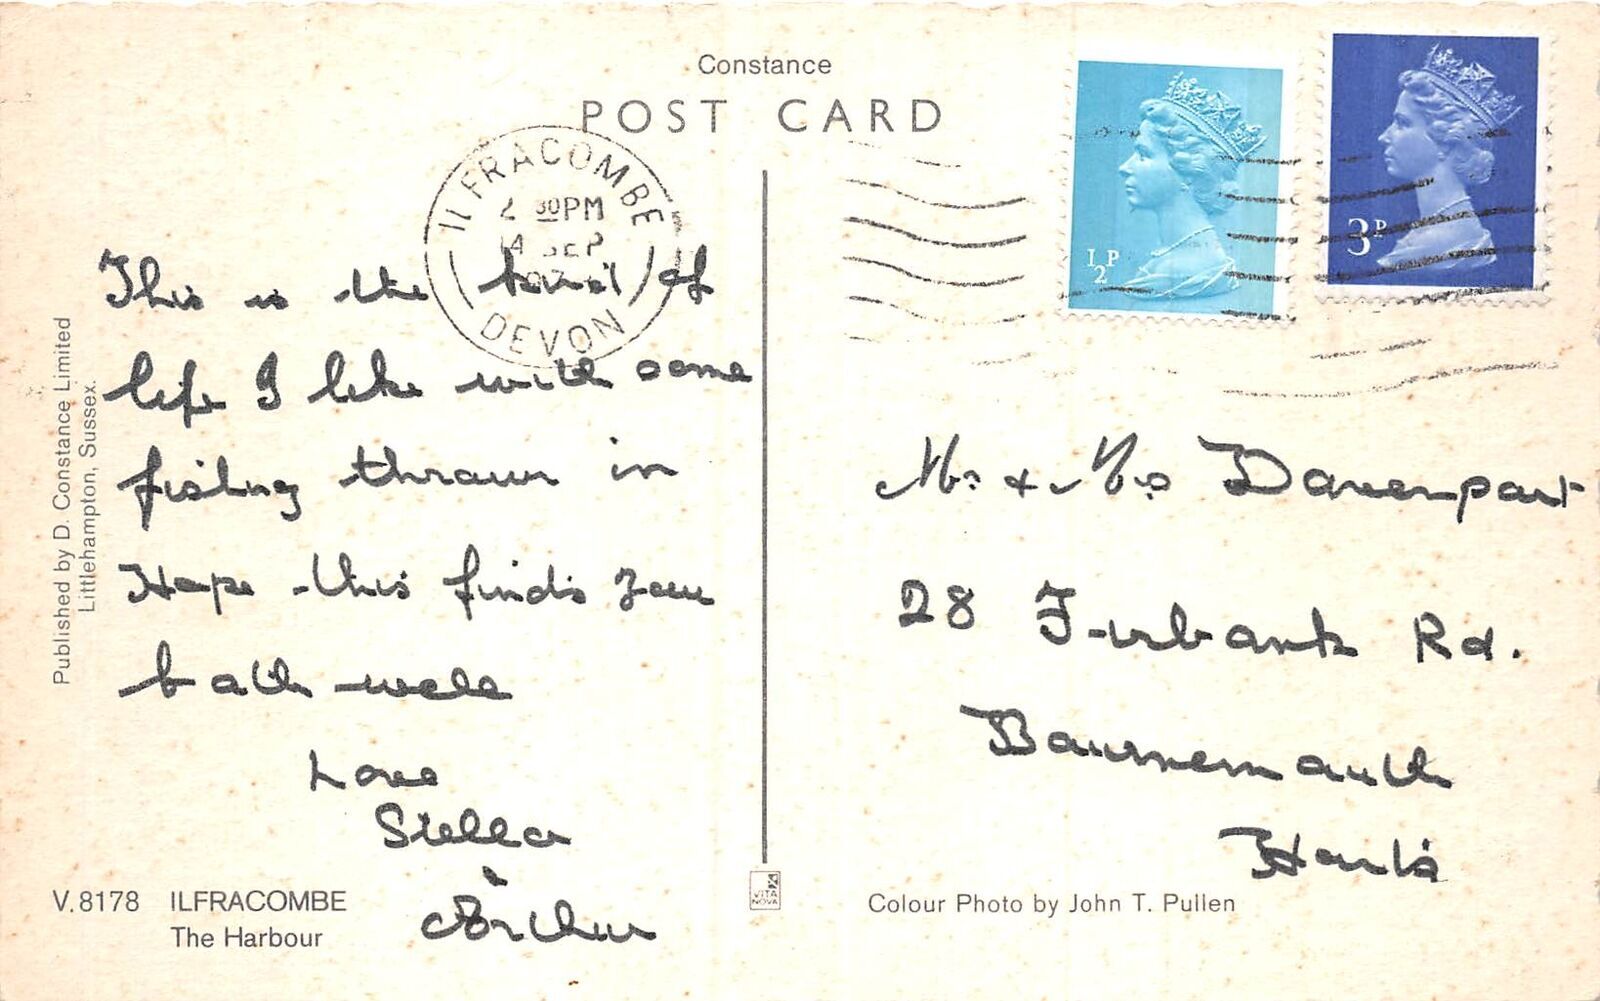 Constance
POST CARD
ILFRACOMBE
30PM
SEP
DEVON
1/2P
3P
This is the (kind) of
life I like with some
fishing thrown in
Hope this finds you
both well
Love
Stella
&
Arthur
Mr & Mrs Davenport
28 Firbank Rd.
Bournemouth
Hants
Published by D. Constance Limited
Littlehampton, Sussex.
V.8178 ILFRACOMBE
The Harbour
VITA
NOVA
Colour Photo by John T. Pullen